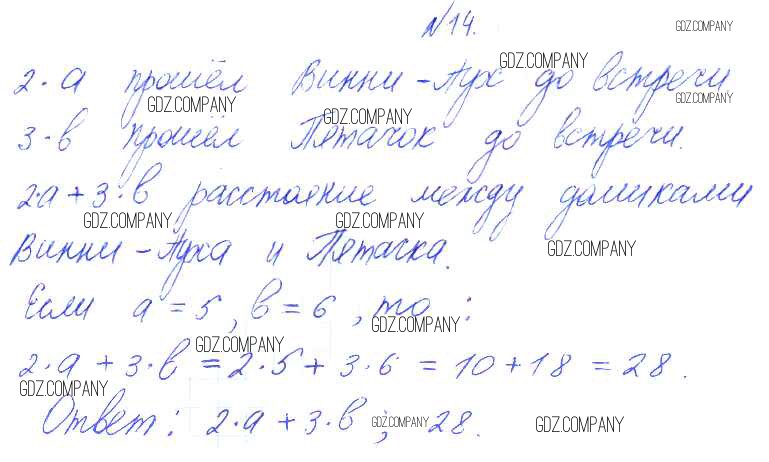 №14.
2·a прошёл Винни-Пух до встречи
3·b прошёл Пятачок до встречи.
2·a + 3·b расстояние между домиками
Винни-Пуха и Пятачка.
Если a = 5, b = 6, то:
2·a + 3·b = 2·5 + 3·6 = 10 + 18 = 28.
Ответ: 2·a + 3·b; 28.
GDZ.COMPANY
GDZ.COMPANY
GDZ.COMPANY
GDZ.COMPANY
GDZ.COMPANY
GDZ.COMPANY
GDZ.COMPANY
GDZ.COMPANY
GDZ.COMPANY
GDZ.COMPANY
GDZ.COMPANY
GDZ.COMPANY
GDZ.COMPANY